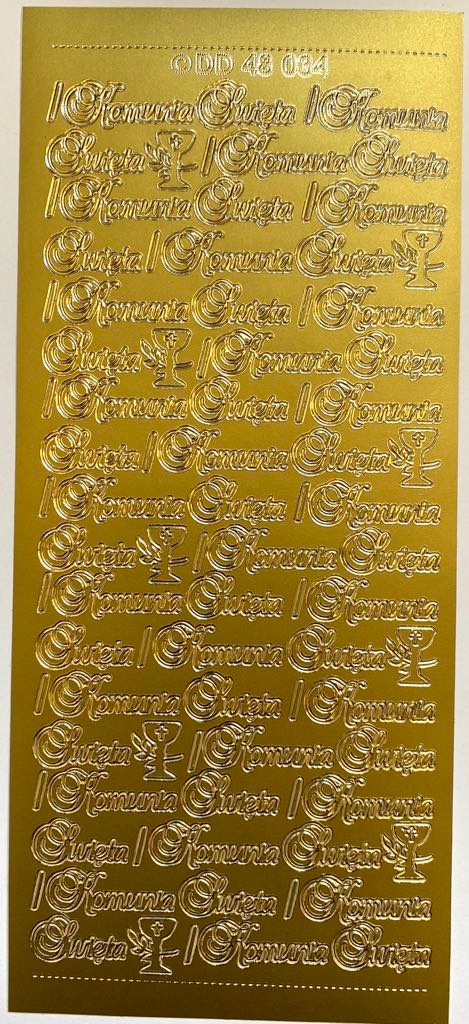 ©DD 48 034
I Komunia Święta I Komunia
Święta I Komunia Święta
I Komunia Święta I Komunia
Święta I Komunia Święta
I Komunia Święta I Komunia
Święta I Komunia Święta
I Komunia Święta I Komunia
Święta I Komunia Święta
I Komunia Święta I Komunia
Święta I Komunia Święta
I Komunia Święta I Komunia
Święta I Komunia Święta
I Komunia Święta I Komunia
Święta I Komunia Święta
I Komunia Święta I Komunia
Święta I Komunia Święta
I Komunia Święta I Komunia
Święta I Komunia Święta